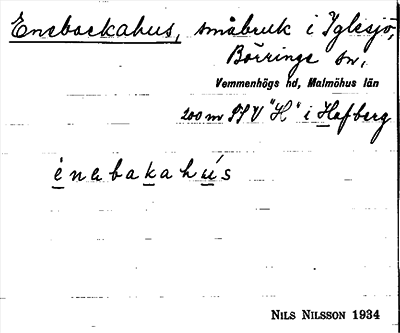 Enebackahus, småbruk i Yglesjö,
Börringe sn,
Vemmenhögs hd, Malmöhus län
200 m SSV "H" i Hafberg
ènebakahús
NILS NILSSON 1934